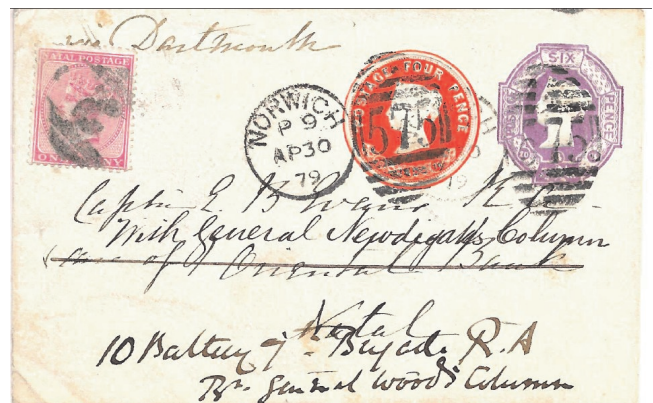 via Dartmouth
POSTAGE
NORWICH
P 9
AP 30
79
POSTAGE FOUR PENCE
575
SIX
PENCE
75
Captn E B Evans R.A.
With General Newdigate's Column
care of Oriental Bank
Natal
10 Battery 7th Brigade R.A
Br. General Wood's Column